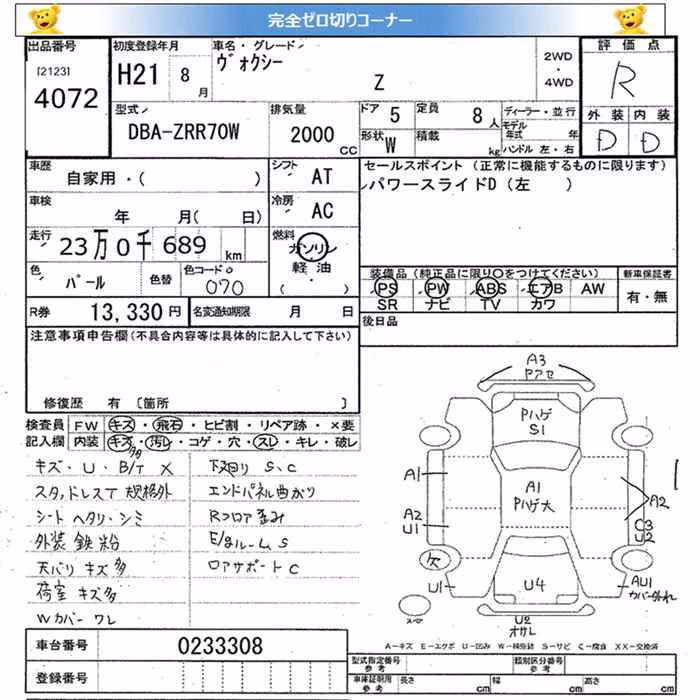 完全ゼロ切りコーナー
出品番号
[2123]
4072
初度登録年月
H21 8
月
車名・グレード
ヴォクシー
Z
2WD
・
4WD
評価点
R
外装 内装
D D
型式
DBA-ZRR70W
排気量
2000
CC
ドア 5
形状 W
定員 8人
積載 kg
ディーラー・並行
モデル年式 年
ハンドル 左・右
車歴
自家用・( )
車検
年 月( 日)
走行
23万0千689 km
色
パール
色替
色コードNo
070
シフト AT
冷房 AC
燃料
ガソリン
軽油
( )
セールスポイント (正常に機能するものに限ります)
パワースライドD (左 )
装備品 (純正品に限り○をつけてください)
PS PW ABS エアB AW
SR ナビ TV カワ
新車保証書
有・無
後日品
R券 13,330円
名変通知期限 月 日
注意事項申告欄(不具合内容等は具体的に記入して下さい)
修復歴 有 〔箇所 〕
検査員
記入欄
FW キズ・飛石・ヒビ割・リペア跡・×要
内装 キズ・汚レ・コゲ・穴・スレ・キレ・破レ
キズ・U・B/T X
スタッドレスT 規格外
シート ヘタリ・シミ
外装 鉄粉
天バリ キズ多
荷室 キズ多
Wカバー ワレ
下廻り S、C
エンドパネル曲がり
Rフロア歪み
E/gルームS
ロアサポートC
A3
Pハゲ
S1
A1
A1
Pハゲ大
A2
A2
U1
C3
U2
U1
U4
AU1
カバー外れ
U2
A-キズ E-エクボ U-凹み W-補修跡 S-サビ C-腐食 XX-交換済
車台番号
0233308
登録番号
型式指定番号
参考
類別区分番号
参考
車庫証明用
参考
長さ cm
幅 cm
高さ cm